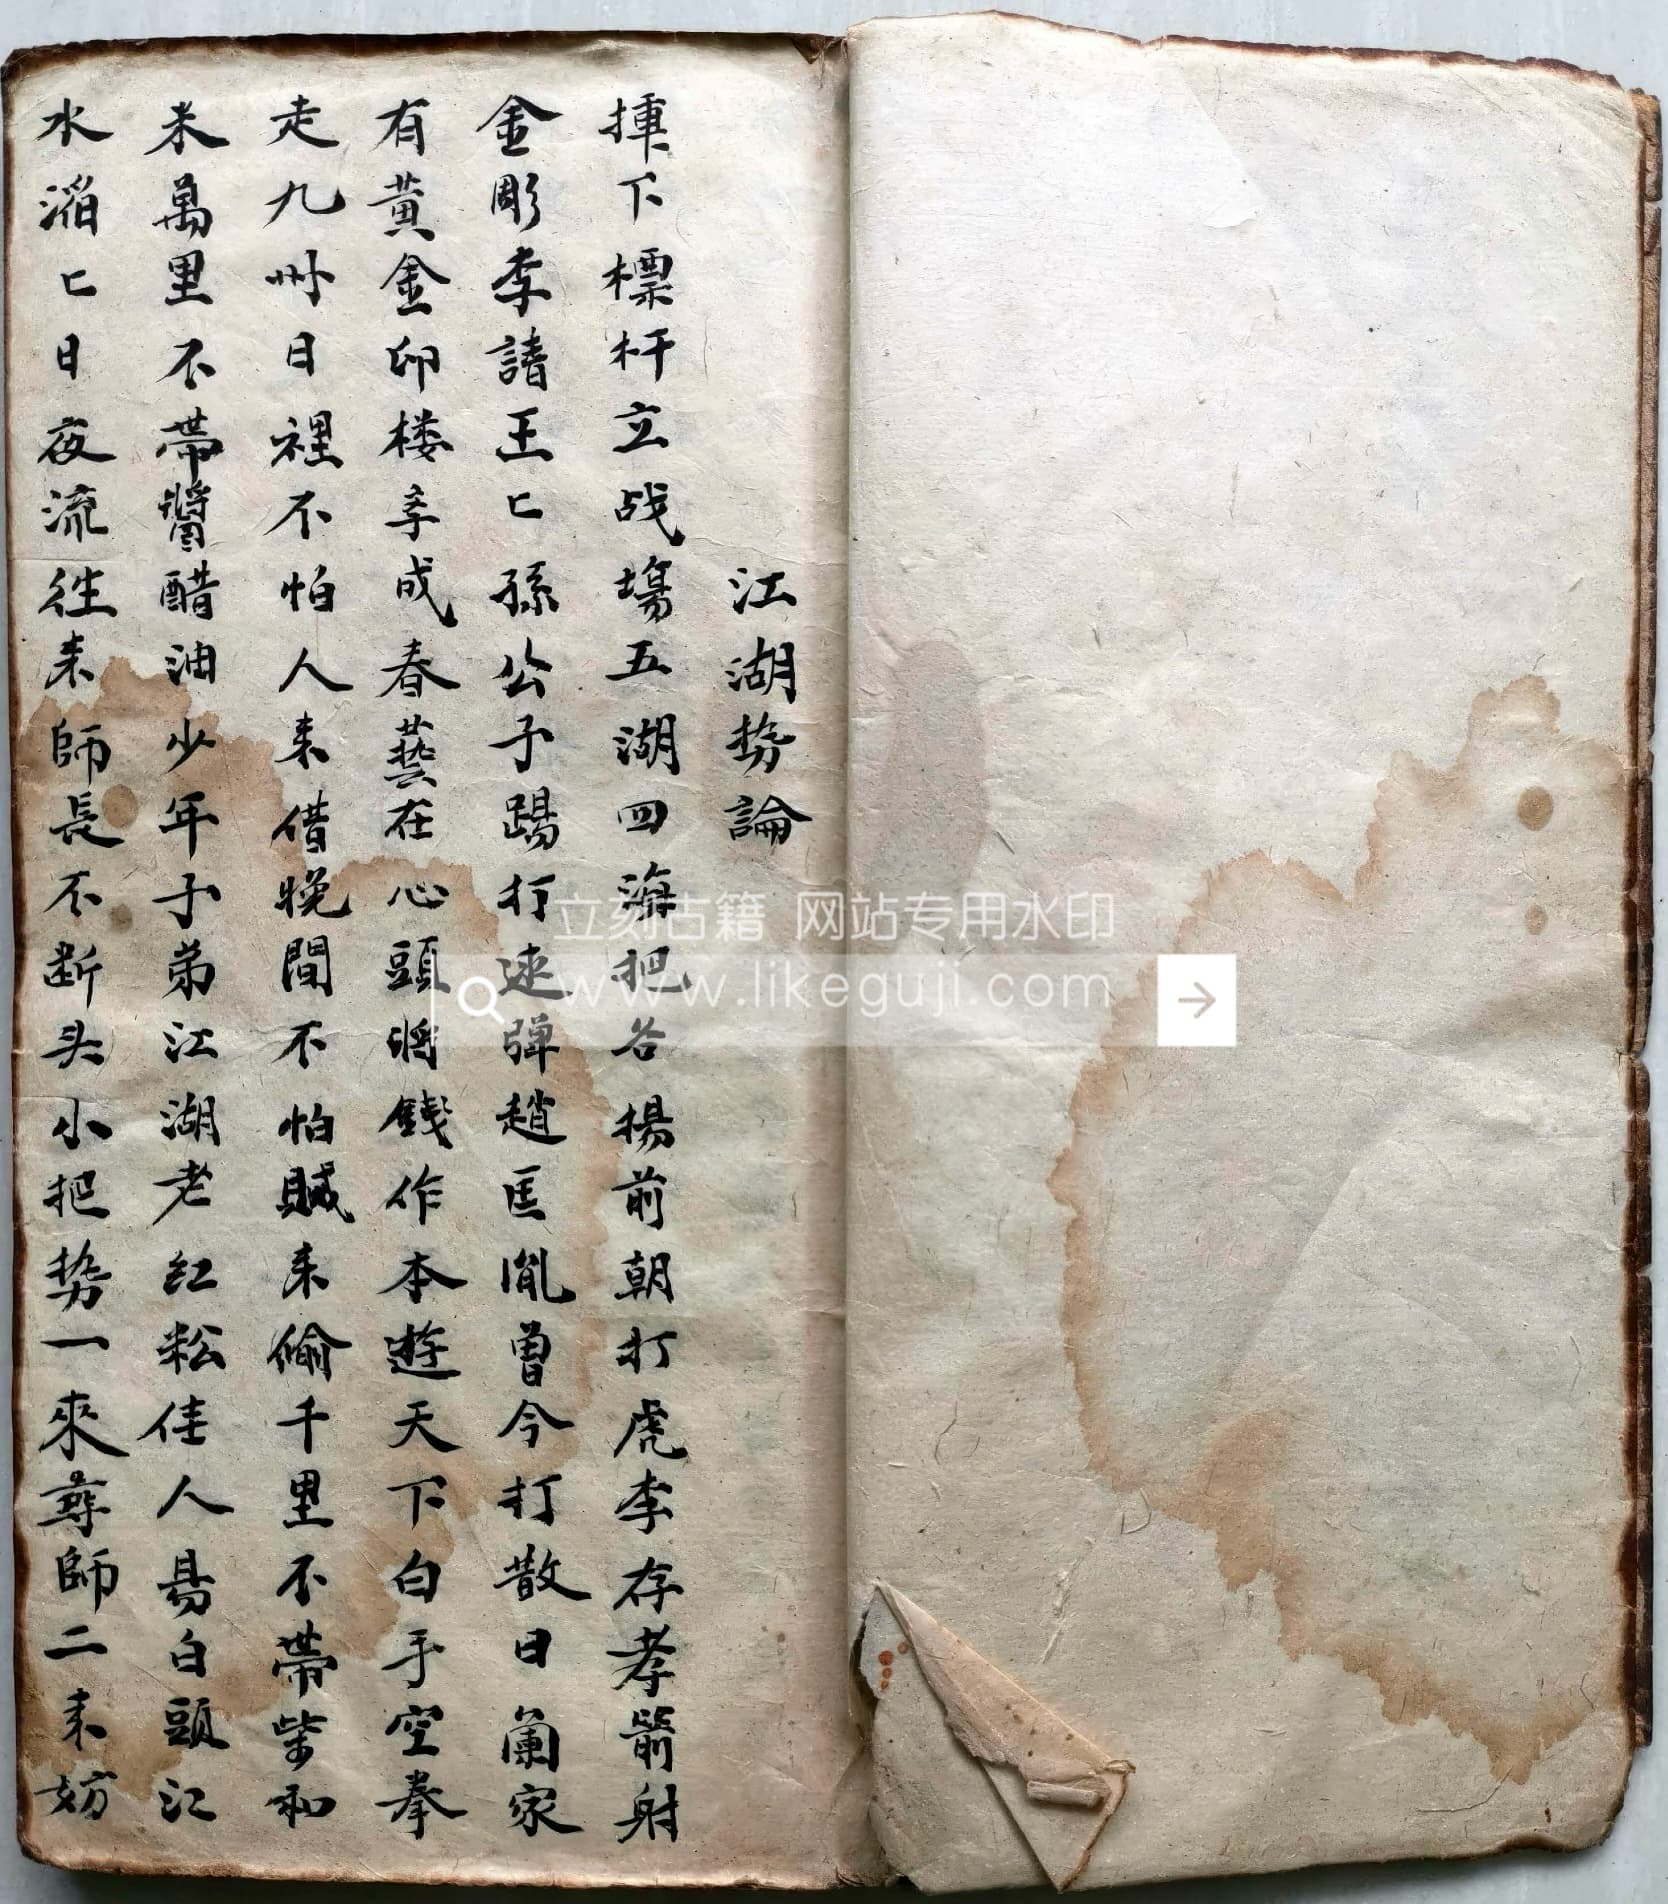 江湖势論
揮下標杆立战塲五湖四海把名揚前朝打虎李存孝箭射
金彫李請王匕孫公子踢打速彈趙匡胤曾今打散日蘭家
有黄金印楼李成春藝在心頭將錢作本遊天下白手空拳
走九州日裡不怕人来借晚間不怕贼来偷千里不带柴和
米萬里不带醬醋油少年子弟江湖老红粉佳人易白頭江
水滔匕日夜流徃来師長不断头小把势一來尊師二来妨
立刻古籍 网站专用水印
www.likeguji.com